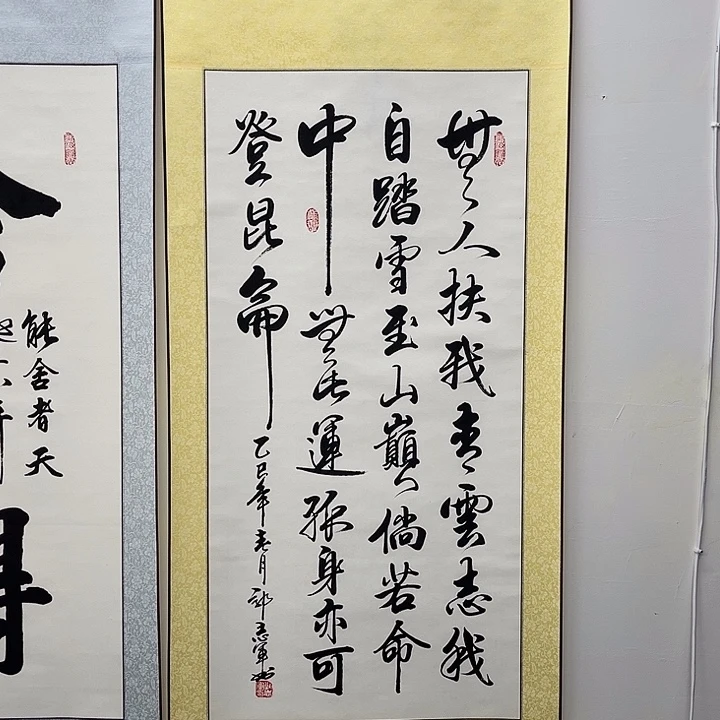 無人扶我青雲志我
自踏雪至山巔倘若命
中無此運孤身亦可
登昆侖
乙巳年春月郭志軍书
能舍者天